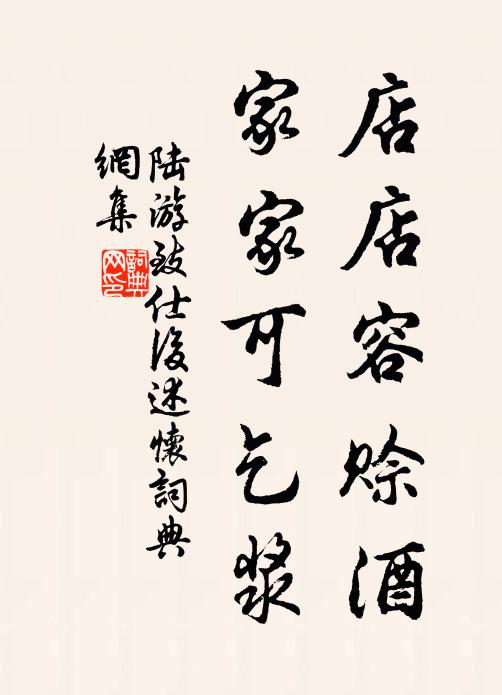 店店容赊酒
家家可乞浆
陆游致仕後述懷詞典
網集
詞典
网印